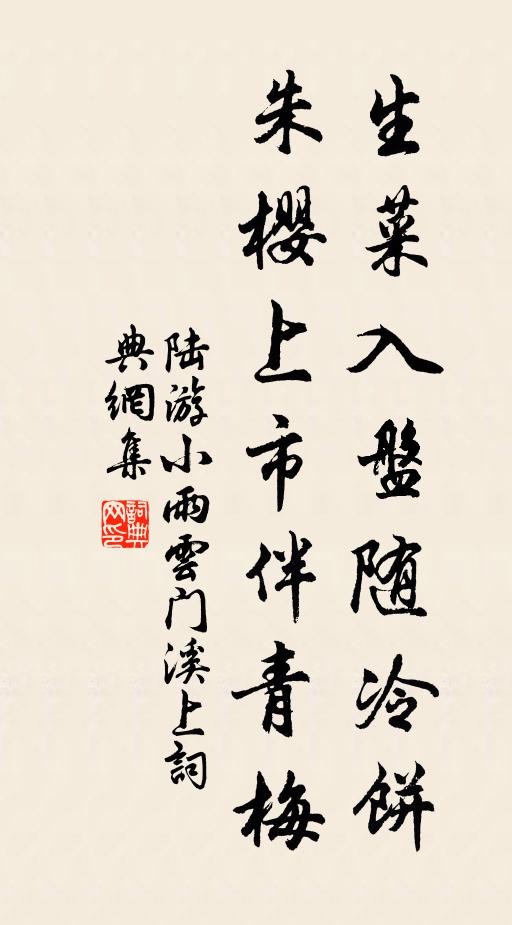 生菜入盤随冷餅
朱櫻上市伴青梅
陆游小雨雲门溪上詞
典網集
詞典
网印